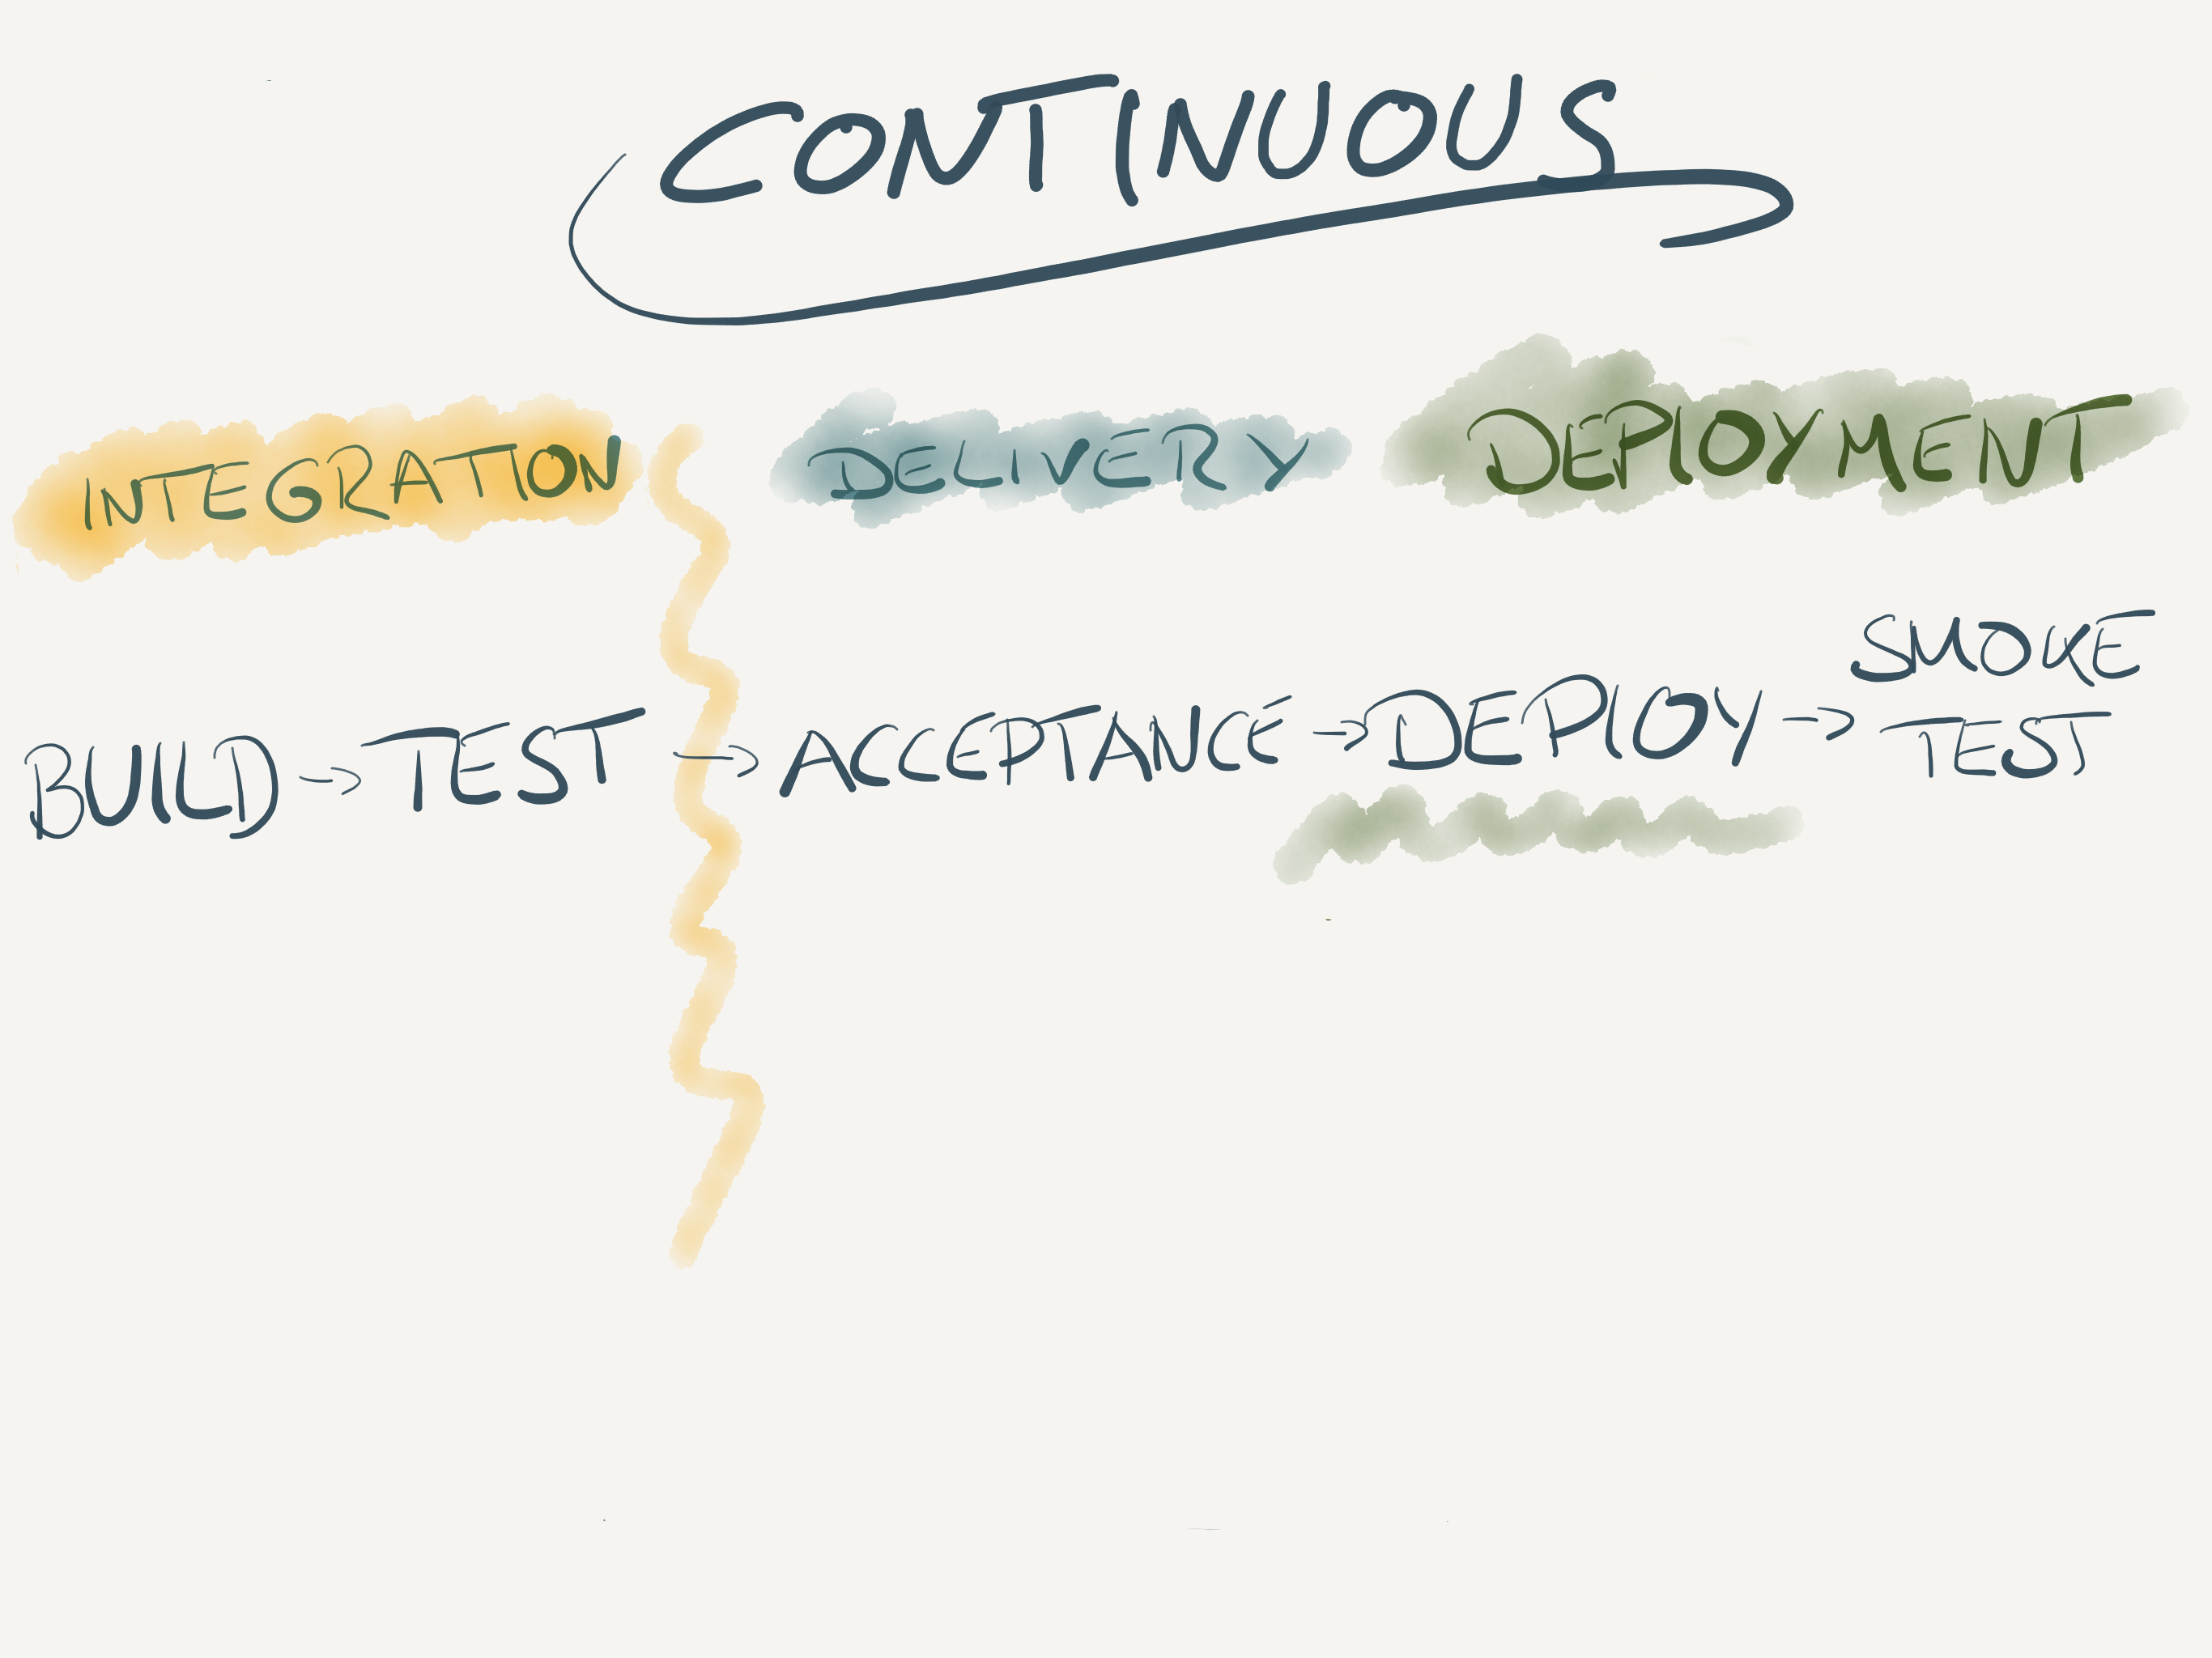 CONTINUOUS
INTEGRATION DELIVERY DEPLOYMENT
BUILD → TEST → ACCEPTANCE → DEPLOY → SMOKE
TEST